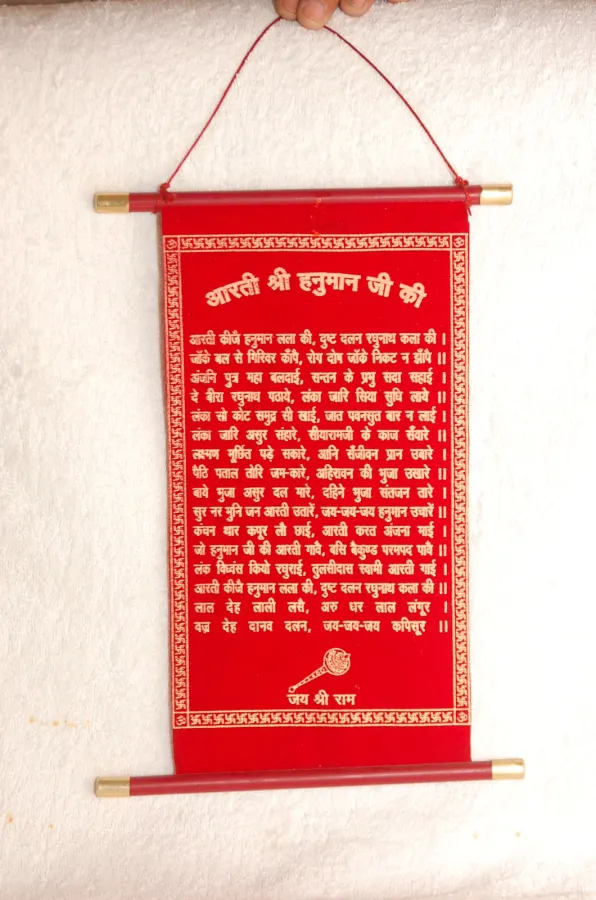 आरती श्री हनुमान जी की
आरती कीजै हनुमान लला की, दुष्ट दलन रघुनाथ कला की ।
जाँके बल से गिरिवर काँपै, रोग दोष जाँके निकट न झाँपै ।।
अंजनि पुत्र महा बलदाई, सन्तन के प्रभु सदा सहाई ।
दे बीरा रघुनाथ पठाये, लंका जारि सिया सुधि लाये ।।
लंका सो कोट समुद्र सी खाई, जात पवनसुत बार न लाई ।
लंका जारि असुर संहारे, सीयारामजी के काज सँवारे ।।
लक्ष्मण मूर्छित पड़े सकारे, आनि सँजीवन प्रान उबारे ।
पैठि पताल तोरि जम-कारे, अहिरावन की भुजा उखारे ।।
बाये भुजा असुर दल मारे, दहिने भुजा संतजन तारे ।
सुर नर मुनि जन आरती उतारें, जय-जय-जय हनुमान उचारें ।।
कंचन थार कपूर लौ छाई, आरती करत अंजना माई ।
जो हनुमान जी की आरती गावै, बसि बैकुण्ड परमपद पावै ।।
लंक विध्वंस कियो रघुराई, तुलसीदास स्वामी आरती गाई ।
आरती कीजै हनुमान लला की, दुष्ट दलन रघुनाथ कला की ।।
लाल देह लाली लसै, अरु धर लाल लंगूर ।
वज्र देह दानव दलन, जय-जय-जय कपिसूर ।।
जय श्री राम